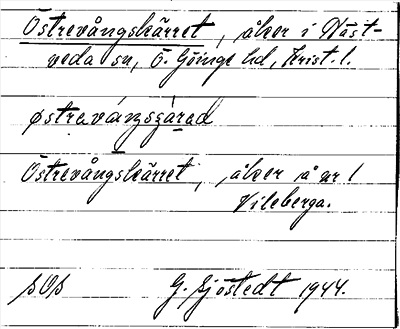 Östrevångskärret, åker i Näst-
veda sn, Ö. Göinge hd, Krist. l.
østravångsçárad
Östrevångskärret, åker å nr 1
Vileberga.
SOS
G. Sjöstedt 1944.